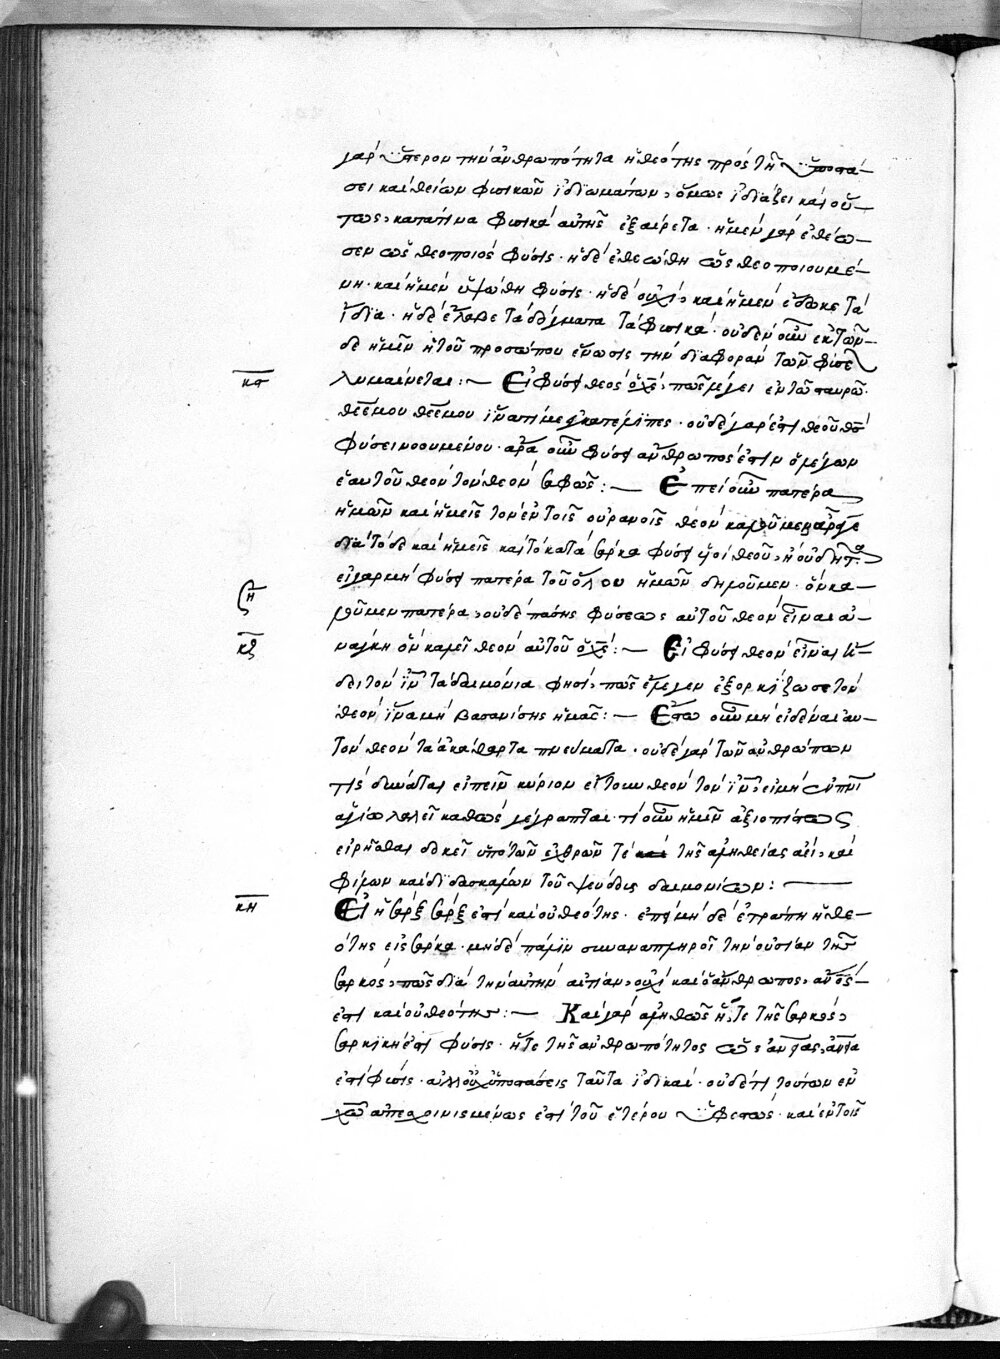 γὰρ ὕστερον τὴν ἀνθρωπότητα ἡ θεότης πρὸς τῆ ὑποστά–
σει καὶ θείων φυσικῶν ἰδιωμάτων, ὅμως ἰδιάζει καὶ οὕ–
τως, κατά τινα φυσικὰ αὐτῆς ἐξαίρετα · ἡ μὲν γὰρ ἐθέω–
σεν ὡς θεοποιὸς φύσις · ἡ δὲ ἐθεώθη ὡς θεοποιουμέ–
νη · καὶ ἡ μὲν ὑψώθη φύσις · ἡ δὲ οὐχί, καὶ ἡ μὲν ἔδωκε τὰ
ἴδια · ἡ δὲ ἔλαβε τὰ δόγματα τὰ φυσικά · οὐδὲν οὖν ἐκ τῶν–
δε ἡμῖν ἡ τοῦ προσώπου ἕνωσις τὴν διαφορὰν τῶν φύσεων
λυμαίνεται : — κϛ Εἰ φύσει θεὸς ὁ χς, πῶς λέγει ἐν τῶ σταυρῶ ·
θεέ μου θεέ μου ἵνα τί με ἐγκατέλιπες · οὐδὲ γὰρ ἐπὶ θεοῦ τὸ
φύσει νοουμένου · ἄρα οὖν φύσει ἄνθρωπός ἐστιν ὁ λέγων
ἑαυτοῦ θεὸν τὸν θεὸν σαφῶς : — Ἐπεὶ οὖν πατέρα
ἡμῶν καὶ ἡμεῖς τὸν ἐν τοῖς οὐρανοῖς θεὸν καλοῦμεν
διὰ τόδε καὶ ἡμεῖς καὶ τὸ κατὰ σάρκα φύσει υἱοὶ θεοῦ,
εἰ γὰρ μὴ φύσει πατέρα τοῦ ὅλου ἡμῶν δηλοῦμεν · ὃν κα–
ση λοῦμεν πατέρα, οὐδὲ πάσης φύσεως αὐτοῦ θεὸν εἶναι ἀ–
κζ νάγκη ὃν καλεῖ θεὸν αὐτοῦ ὁ χς : — Εἰ φύσει θεὸν εἶναι
δει τὸν ιν τὰ δαιμόνια φησί, πῶς ἔλεγεν ἐξορκίζω σε τὸν
θεόν, ἵνα μὴ βασανίσης ἡμᾶς : — Ἔστω οὖν μὴ εἰδέναι αὐ–
τὸν θεὸν τὰ ἀκάθαρτα πνεύματα · οὐδὲ γὰρ τῶν ἀνθρώπων
τὶς δύναται εἰπεῖν κύριον εἴτουν θεὸν τὸν ιν, εἰ μὴ ἐν πνι
ἁγίω λαλεῖ καθὼς γέγραπται · τί οὖν ἡμῖν ἀξιοπίστως
εἰρῆσθαι δοκεῖ ὑπὸ τῶν ἐχθρῶν τε τῆς ἀληθείας ἀεί, καὶ
φίλων καὶ διδασκάλων τοῦ ψεύδους δαιμονίων : ——
κη Εἰ ἡ σὰρξ σάρξ ἐστι καὶ οὐ θεότης · ἐπεὶ μὴ δὲ ἐτράπη ἡ θε–
ότης εἰς σάρκα · μηδὲ πάλιν συναναπληροῖ τὴν οὐσίαν τῆς
σαρκός, πῶς διὰ τὴν αὐτὴν αἰτίαν, οὐχὶ καὶ ὁ ἄνθρωπος, ανός–
ἐστι καὶ οὐ θεότης : — Καὶ γὰρ ἀληθῶς ἥ τε τῆς σαρκὸς,
σαρκική ἐστι φύσις · ἥ τε τῆς ἀνθρωπότητος
ἐστὶ φύσις · ἀλλ' οὐχ ὑποστάσεις ταῦτα ἰδικαί · οὐδέ τι τούτων ἐν
χω ἀποκεχωρισμένως ἐστὶ τοῦ ἑτέρου ὑφεστώς · καὶ ἐν τοῖς